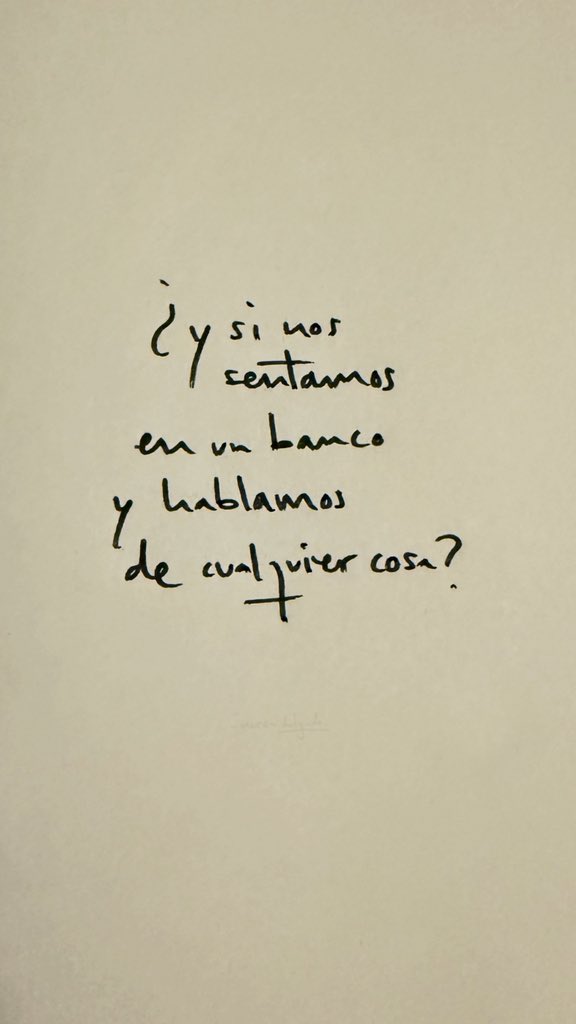 ¿y si nos
sentamos
en un banco
y hablamos
de cualquier cosa?